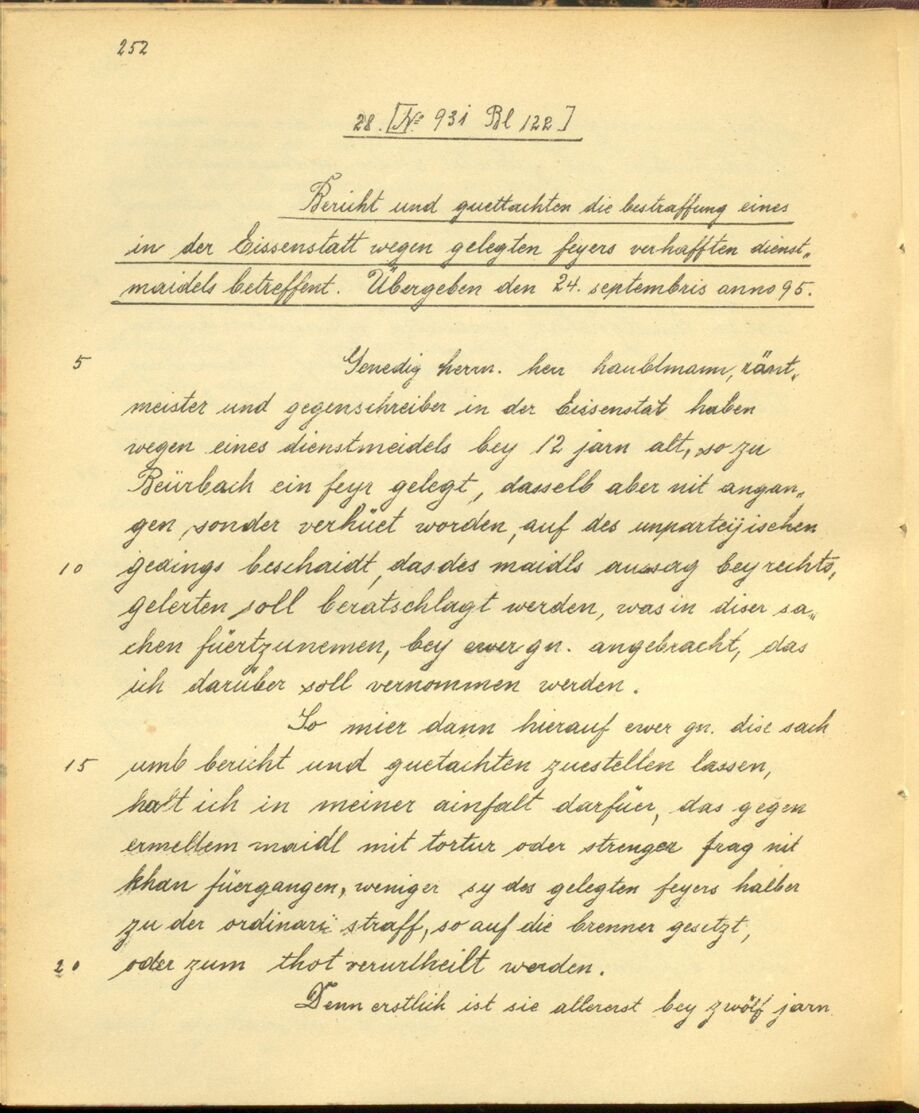 252
28. [№ 931 Bl 122]
Bericht und guettachten die bestraffung eines
in der Eissenstatt wegen gelegten feyers verhafften dienst„
maidels betreffent. Übergeben den 24. septembris anno 95.
5 Genedig herrn. herr haubtmann, ränt„
meister und gegenschreiber in der Eissenstat haben
wegen eines dienstmeidels bey 12 jarn alt, so zu
Beürbach ein feyr gelegt, dasselb aber nit angan„
gen, sonder verhüet worden, auf des unparteijischen
10 gedings beschaidt, das des maidls aussag bey rechts„
gelerten soll beratschlagt werden, was in diser sa„
chen füertzunemen, bey ewer gn. angebracht, das
ich darüber soll vernommen werden.
So mier dann hierauf ewer gn. dise sach
15 umb bericht und guetachten zuestellen lassen,
halt ich in meiner ainfalt darfüer, das gegen
ermeltem maidl mit tortur oder strenger frag nit
khan füergangen, weniger sy des gelegten feyers halber
zu der ordinari straff, so auf die brenner gesetzt,
20 oder zum thot verurtheilt werden.
Denn erstlich ist sie allererst bey zwölf jarn